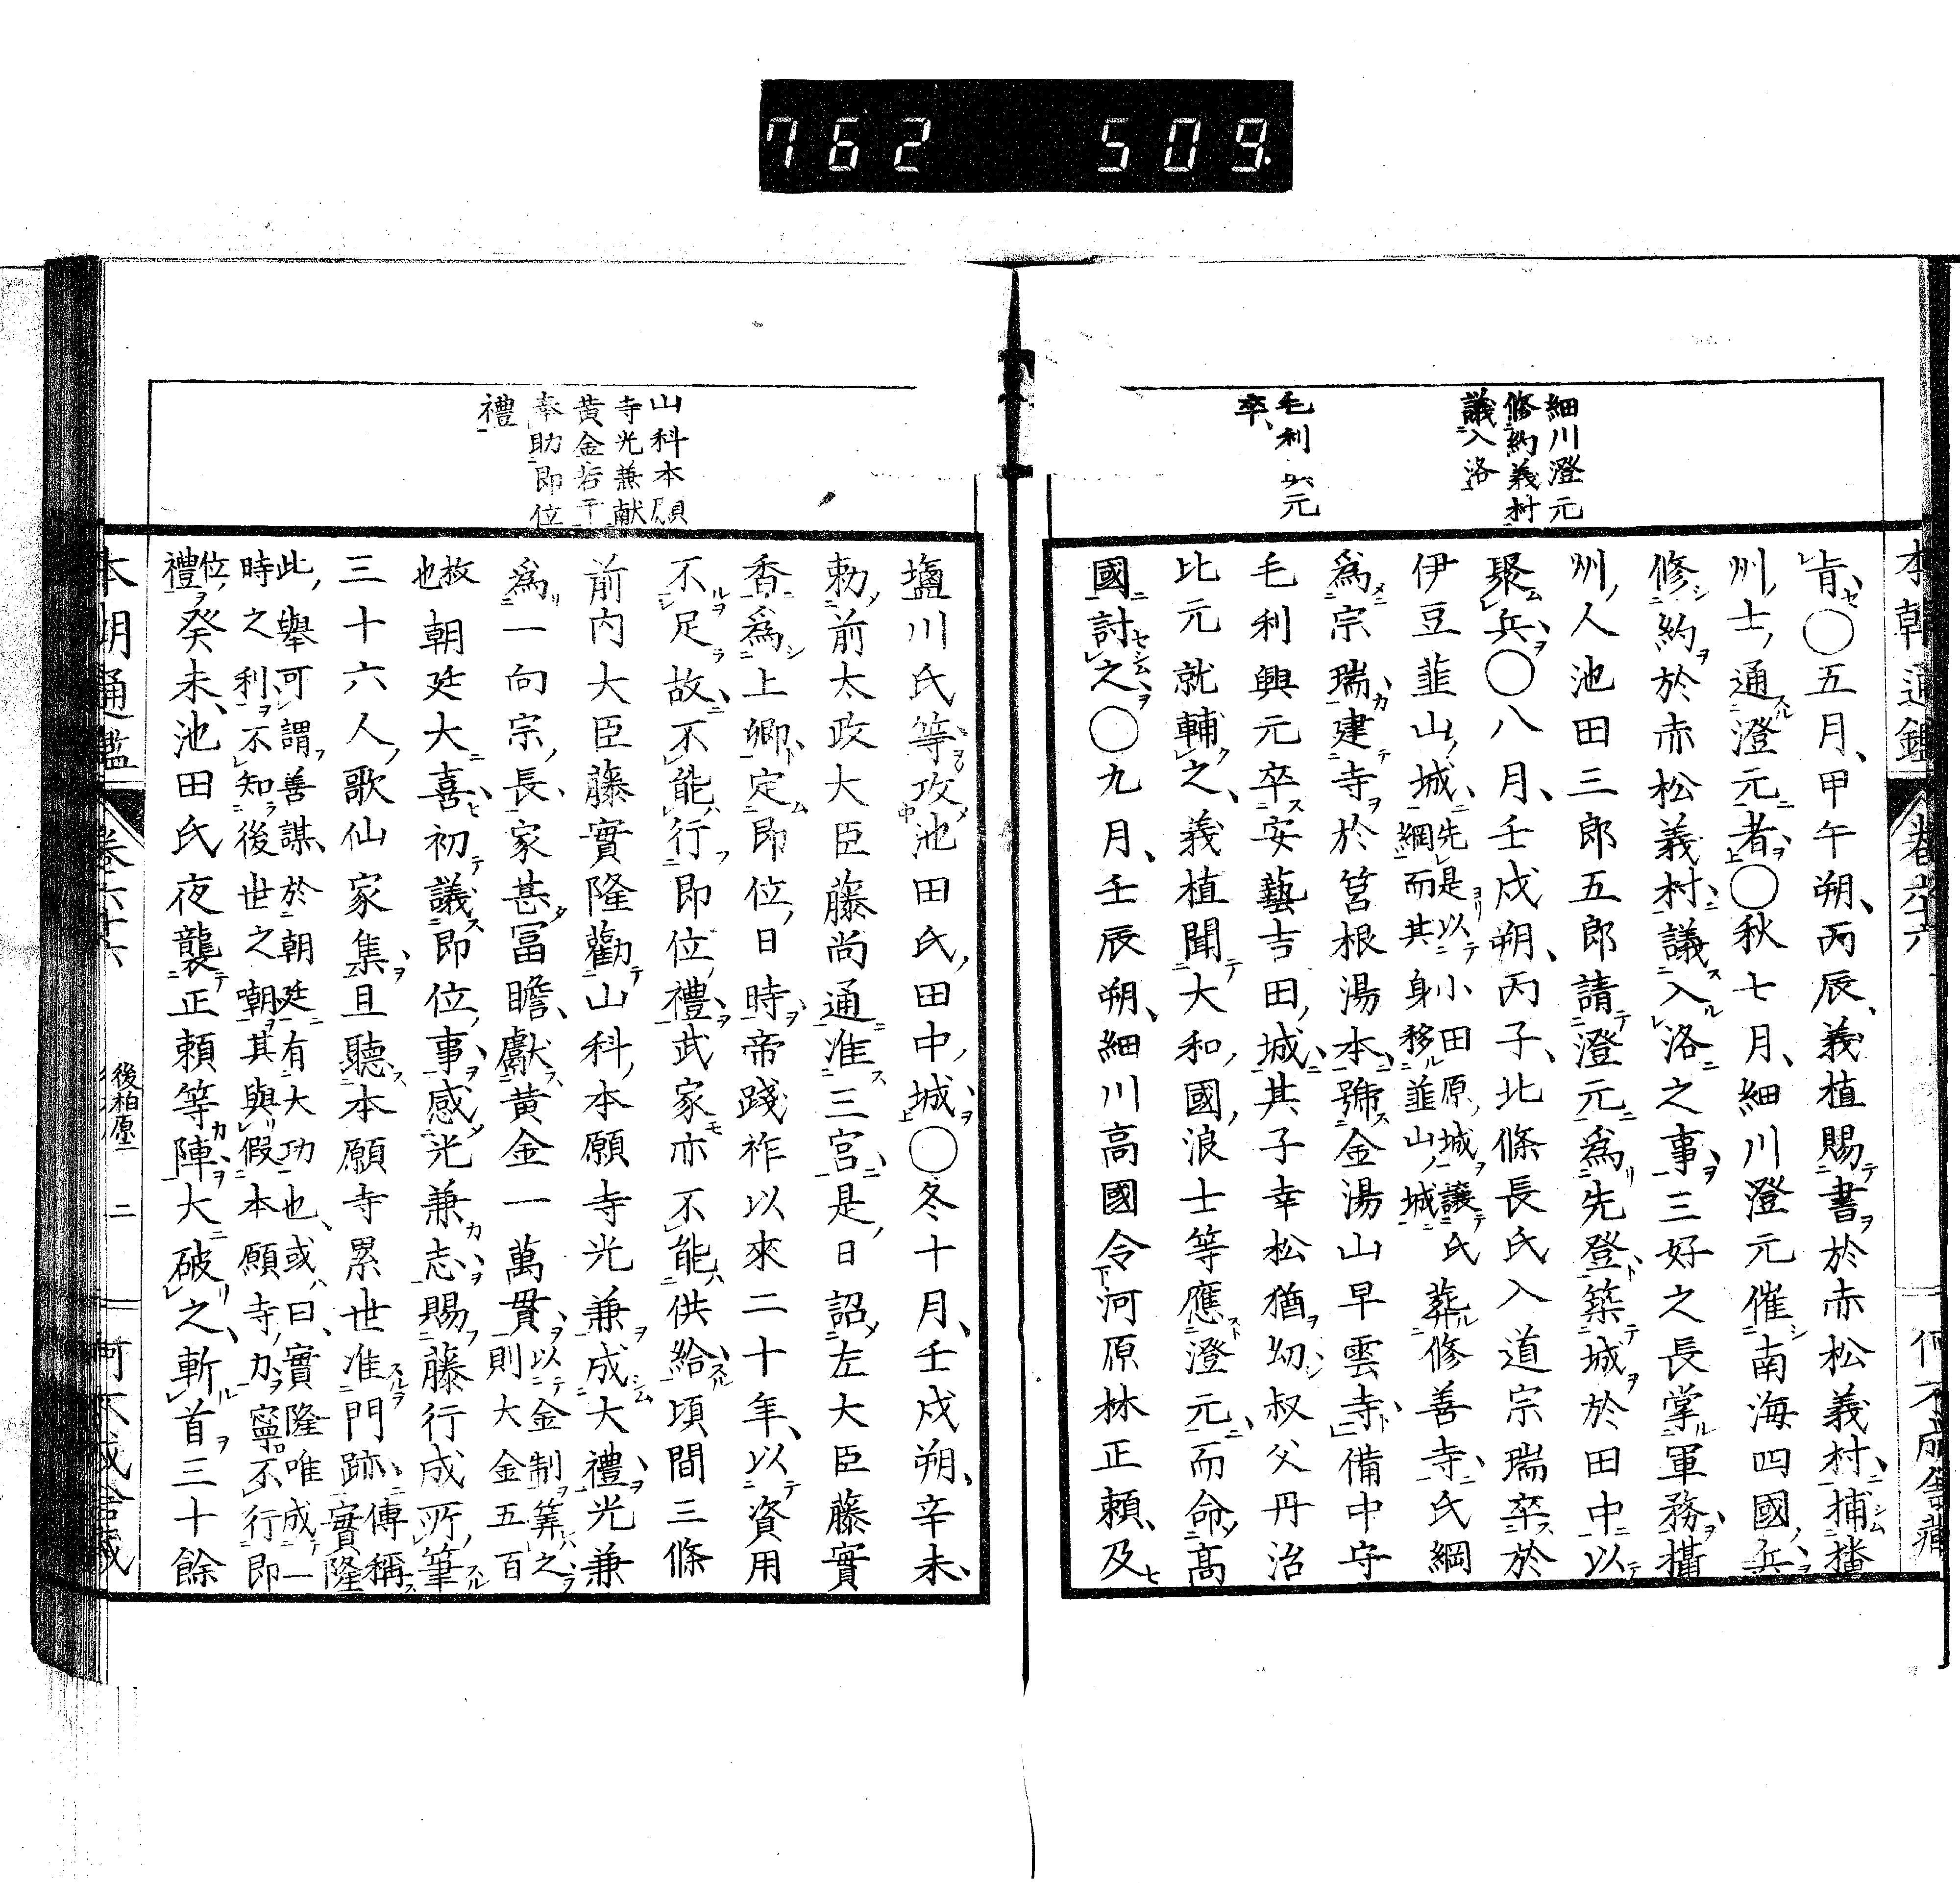 762 509.
細川澄元
修約義村
議入洛
毛利興元
卒
肯○五月甲午朔丙辰義植賜書於赤松義村捕播
州士通澄元者○秋七月細川澄元催南海四國兵
修約於赤松義村議入洛之事三好之長掌軍務攝
州人池田三郎五郎請澄元爲先登築城於田中以
聚兵○八月壬戌朔丙子北條長氏入道宗瑞卒於
伊豆韮山城先是以小田原城讓氏
綱而其身移韮山城葬修善寺氏綱
爲宗瑞建寺於筥根湯本號金湯山早雲寺備中守
毛利興元卒安藝吉田城其子幸松猶幼叔父丹治
比元就輔之義植聞大和國浪士等應澄元而命高
國討之○九月壬辰朔細川高國令河原林正頼及
本朝通鑑 卷六十六
山科本願
寺光兼献
黄金若干
奉助即位
禮
鹽川氏等攻池田氏田中城○冬十月壬戌朔辛未
勅前太政大臣藤尚通准三宮是日詔左大臣藤實
香爲上卿定即位日時帝踐祚以來二十年以資用
不足故不能行即位禮武家亦不能供給頃間三條
前内大臣藤實隆勸山科本願寺光兼成大禮光兼
爲一向宗長家甚冨瞻獻黄金一萬貫以金制筭之
則大金五百
故
也朝廷大喜初議即位事感光兼志賜藤行成所筆
三十六人歌仙家集且聽本願寺累世准門跡傳稱
實隆
此擧可謂善謀於朝廷有大功也或曰實隆唯成一
時之利不知後世之嘲其與假本願寺力寧不行即
位
禮癸未池田氏夜襲正頼等陣大破之斬首三十餘
本朝通鑑 卷六十六 後柏原 二